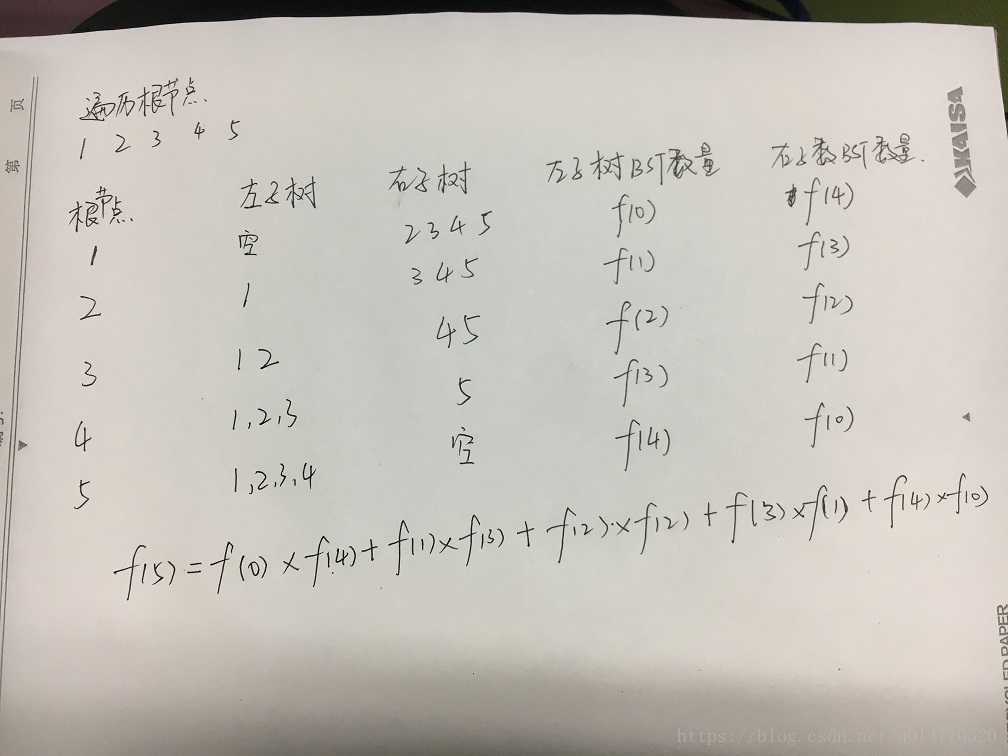 遍历根节点.
1 2 3 4 5
根节点. 左子树 右子树 左子树BST数量 右子数BST数量.
1 空 2 3 4 5 f(0) f(4)
2 1 3 4 5 f(1) f(3)
3 1 2 4 5 f(2) f(2)
4 1,2,3 5 f(3) f(1)
5 1,2,3,4 空 f(4) f(0)
f(5) = f(0) × f(4) + f(1) × f(3) + f(2) × f(2) + f(3) × f(1) + f(4) × f(0)
第 页
KAISA
RECYCLED PAPER